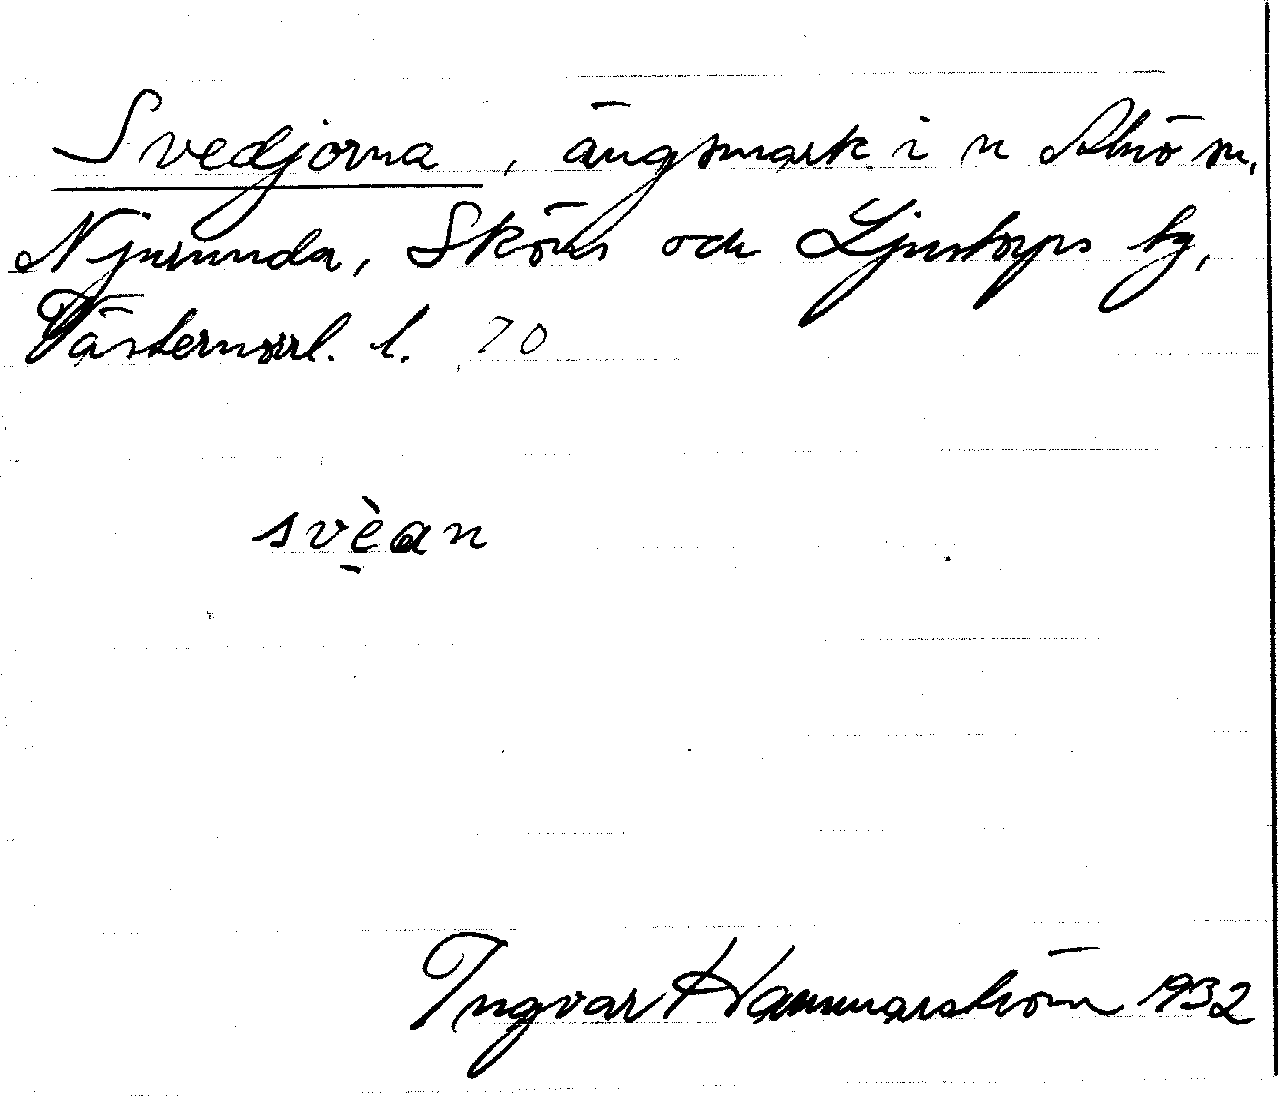 Svedjorna, ängsmark i n Alnö sn,
Njurunda, Sköns och Ljustorps tg,
Västernorrl. l. 20
svèan
Ingvar Hammarström 1932